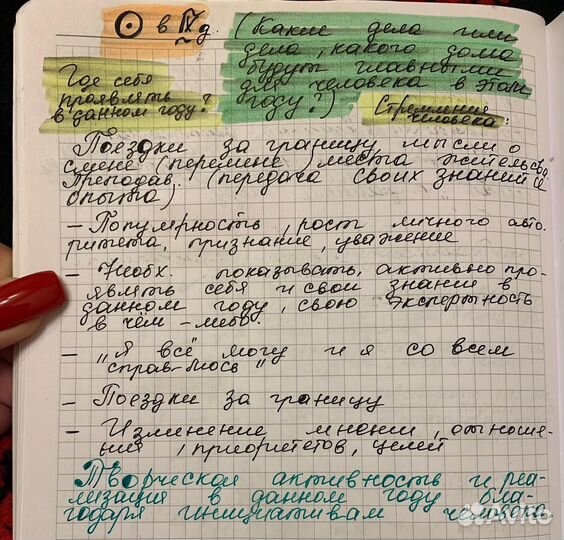 ☉ в IX д. (Какие дела или
дела, какого дома
будут главными
для человека в этом
году?)
Где себя
проявлять
в данном году?
Стремления
человека:
Поездки за границу, мысли о
смене (перемене) места жительсва,
Преподав. (передача своих знаний и
опыта)
- Популярность, рост личного авто-
ритета, признание, уважение
- Необх. показывать, активно про-
являть себя и свои знания в
данном году, свою экспертность
в чём-либо.
- "Я всё могу и я со всем
справ-люсь"
- Поездки за границу
- Изменение мнений, отноше-
ний, приоритетов, целей
Творческая активность и реа-
лизация в данном году бла-
годаря инициативам человека.
Avito